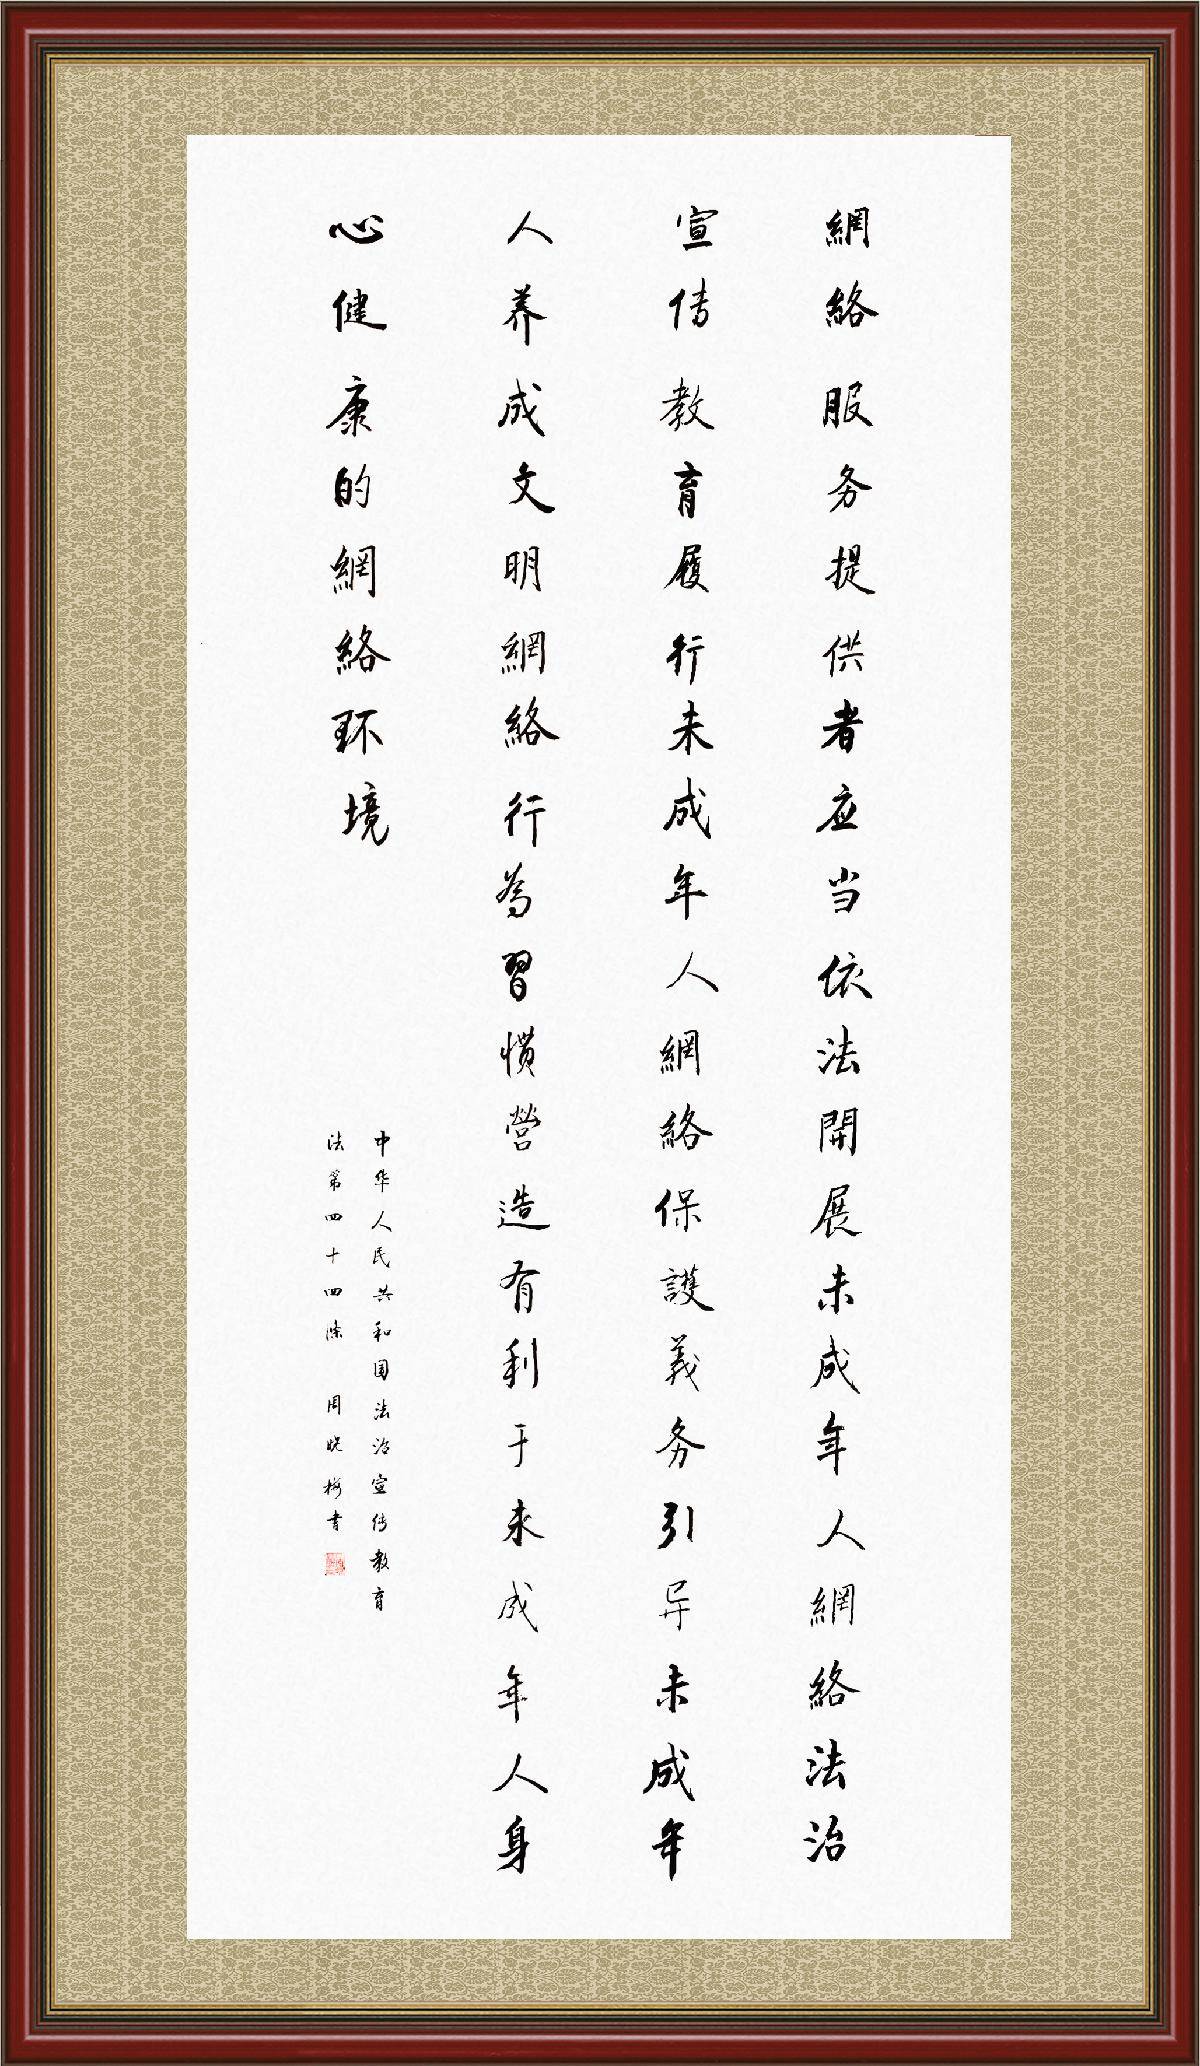 網絡服务提供者应当依法開展未成年人網絡法治
宣传教育履行未成年人網絡保護義务引导未成年
人养成文明網絡行為習慣营造有利于未成年人身
心健康的網絡环境
中华人民共和国法治宣传教育
法第四十四条 周晓梅书